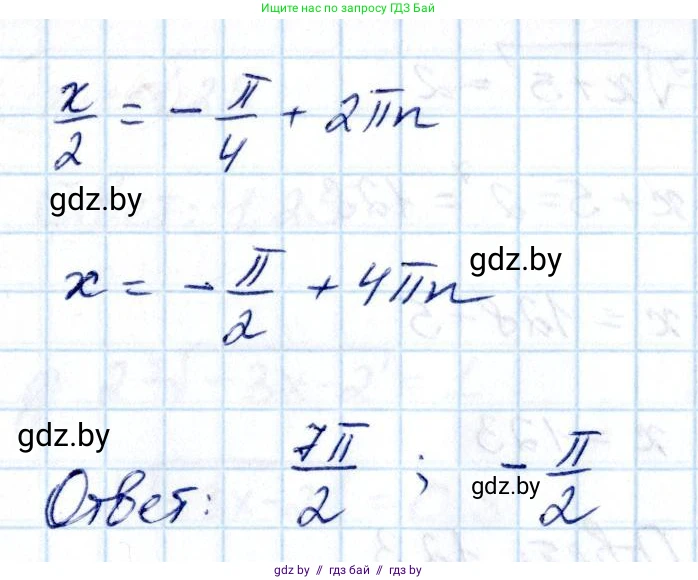 Ищите нас по запросу ГДЗ Бай
x/2 = - π/4 + 2πn
gdz.by
x = - π/2 + 4πn
gdz.by
gdz.by
Ответ: 7π/2 ; - π/2
gdz.by
gdz.by // гдз бай // gdz.by